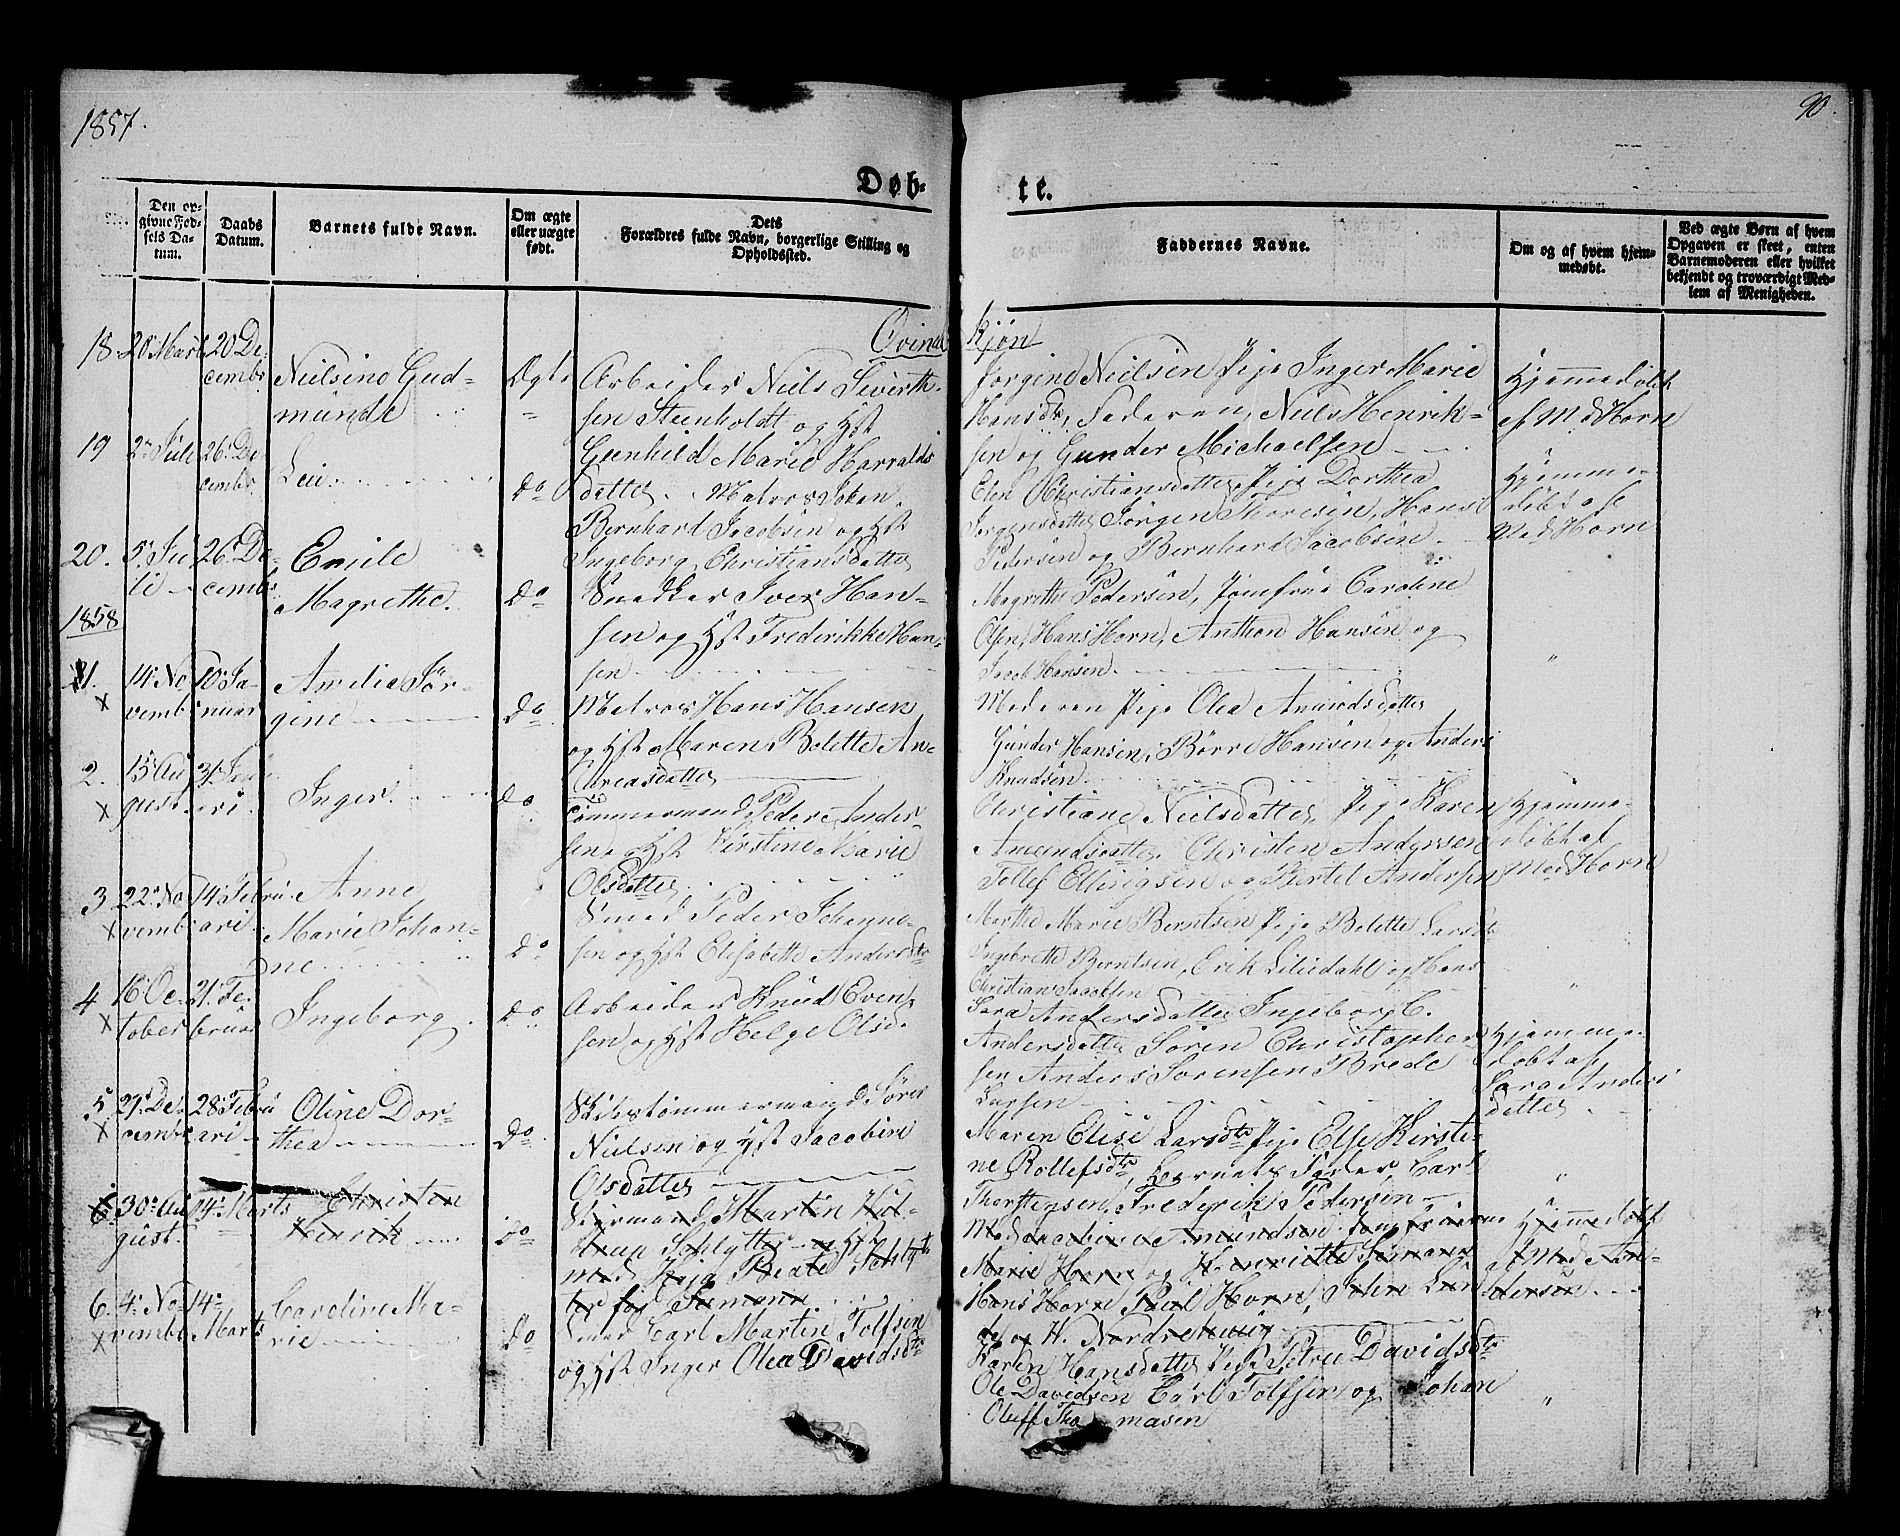 1857.
90.
Døb-
te.
Den op-
givne Fød-
sels Da-
tum.
Daabs
Datum.
Barnets fulde Navn.
Om ægte
eller uægte
født.
Dets
Forældres fulde Navn, borgerlige Stilling og
Opholdssted.
Faddernes Navne.
Om og af hvem hjem-
medøbt.
Ved ægte Børn af hvem
Opgaven er skeet, enten
Barnemoderen eller hvilket
bekjendt og troværdigt Med-
lem af Menigheden.
Qvinde
Kjøn
18
20 Marts
20 De-
cembr
Nielsine Gud-
munde
Ægte
Arbeider Niels Siverth-
sen Steenholdt og Hst
Gunhild Marie Harralds
datter
Jorgine Nielsen Pige Inger Marie
Hansdtr, Faderen, Niels Henrik-
sen og Gunder Michaelsen
Hjemmedøbt
af Md Horn
19
2 Juli
26 De
cembr
do
Matros Johan
Bernhard Jacobsen og Hst
Ingeborg Christiansdatter
Elen Christiansdatter, Pige Dorthea
Jørgensdatter Jørgen Thoresen, Hans
Pedersen og Bernhard Jacobsen
Hjemme-
døbt af
Mad Horn
20.
5 Ju
li
26 De-
cembr
Emile
Magrethe.
do
Snedker Iver Han-
sen og Hst Frederikke Han-
sen
Magrethe Pedersen, Jomfrue Caroline
Olsen, Hans Horn, Anthon Hansen og
Jacob Hansen.
"
1858
1.
14 No
vembr
10 Ja-
nuar
Amelia Jør-
gine
do
Matros Hans Hansen
og Hst Maren Bolette An-
dreasdatter
Moderen Pige Olea Amundsdatter
Gunder Hansen, Børre Hansen og Anders
Knudsen
2.
15 Au
gust
31 Janu
ari
Inger.
do
Tømmermand Peder Ander
sen og Hst Kirstine Marie
Olsdatter
Christiane Nielsdatter, Pige Karen
Amundsdatter Christen Andersen
Tollef Ellingsen og Bertel Andersen
Hjemme-
døbt af
Mad Horn
3
22 No
vembr
14 Febru
ari
Anne
Marie Johan-
ne
do
Smed Peder Johanne-
sen og Hst Elisabethe Andersdtr
Marthe Marie Berntsen Pige Bolette Larsdtr
Ingebrette Berntsen, Erik Liliedahl og Hans
Christian Jacobsen
"
4
16 Oc-
tober
21 Fe-
bruar
Ingeborg
do
Arbeider Knud Even-
sen og Hst Helge Olsd.
Sara Andersdatter Ingeborg C.
Andersdatter Søren Christopher
sen Anders Sørensen Brede
Larsen
Hjemme-
døbt af
Sara Anders
datter
5
29 De-
cembr
28 Febru
ari
Oline Dor-
thea
do
Skibstømmermand Søren
Nielsen og Hst Jacobine
Olsdatter
Maren Elise Larsdtr Pige Else Kirsti-
ne Rollefsdtr, Carl
Thorstensen, Frederik Pedersen
"
6
30 Au
gust.
14 Marts
Christen
Henrik
do
Styrmand Martin
Schlytter og Hst
Kaja Beate Schlyt
ter fød Semann
Mad Jacobine Amundsen Jomfruerne
Marie Horn og Henriette Semann
Hans Horn Paul Horn, John Lun
de og H. Nordrehuug
Hjemmedøbt
af Mad An-
dersen
6.
4 No-
vembr
14
Marts
Caroline Ma-
rie
do
Smed Carl Martin Tolfsen
og Hst Inger Olea Davidsdtr
Karen Hansdatter Pige Petra Davidsdtr
Ole Davidsen Carl Tolfsen og Johan
Oluff Thomasen
"